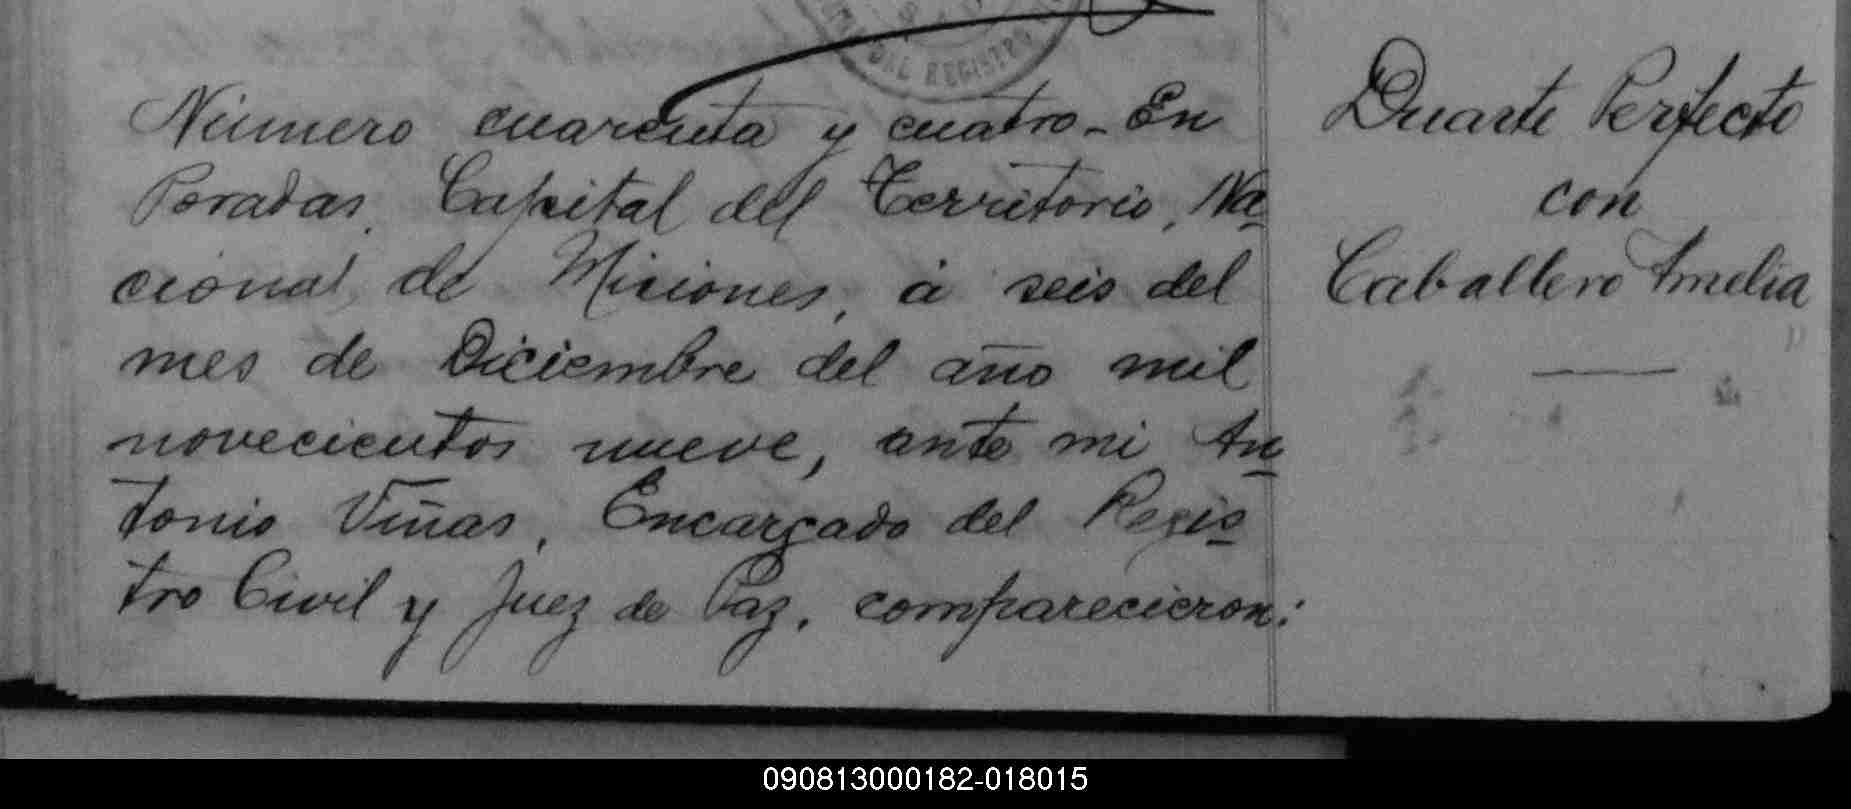 DEL REGISTRO
Número cuarenta y cuatro - En
Posadas, Capital del Territorio, Na
cional de Misiones, á seis del
mes de Diciembre del año mil
novecientos nueve, ante mi An
tonio Viñas, Encargado del Regis
tro Civil y Juez de Paz, comparecieron:
Duarte Perfecto
con
Caballero Amelia
090813000182-018015